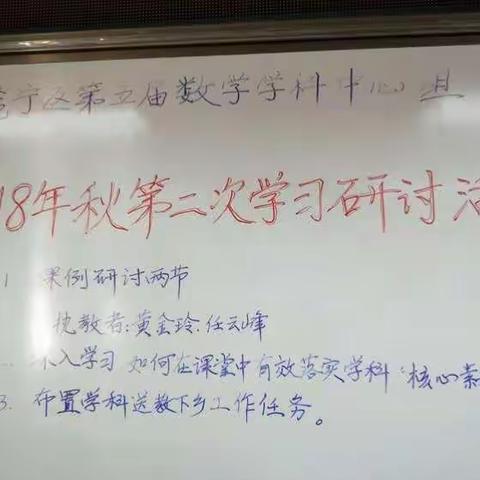 宁区第五届数学学科中心组
18年秋第二次学习研讨活
1 课例研讨两节
执教者:黄金玲.任云峰
深入学习 如何在课堂中有效落实学科"核心素
3. 布置学科送教下乡工作任务。